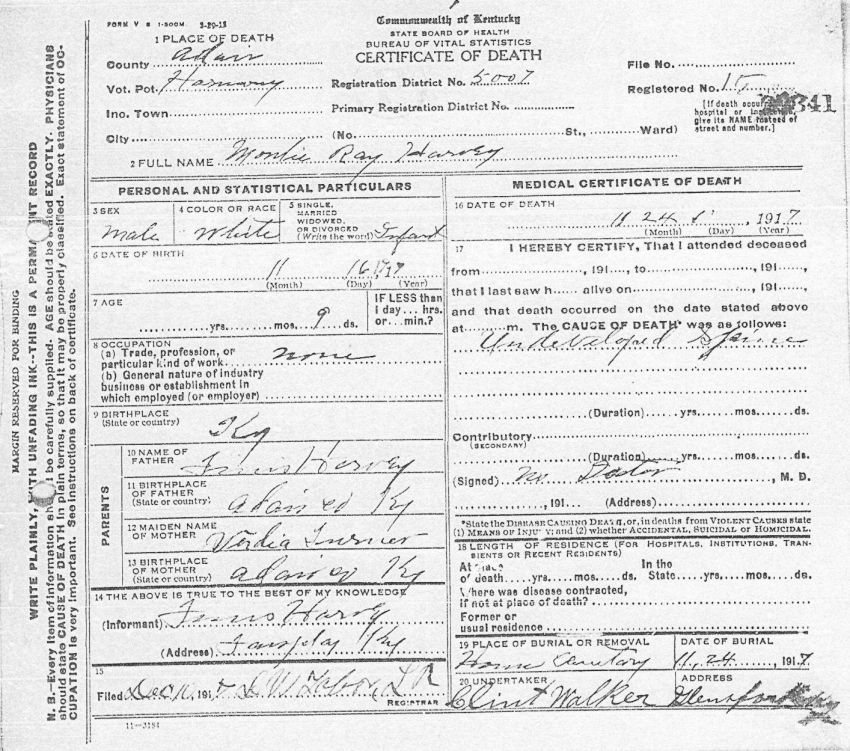 FORM V S 1-500M 3-29-15
Commonwealth of Kentucky
STATE BOARD OF HEALTH
BUREAU OF VITAL STATISTICS
CERTIFICATE OF DEATH
1 PLACE OF DEATH
County Adair
Vot. Pct. Harmony
Ino. Town
City
Registration District No. 5007
Primary Registration District No.
(No. St., Ward)
File No.
Registered No. 15
341
[If death occurred in hospital or institution, give its NAME instead of street and number.]
2 FULL NAME Montie Ray Harvey
PERSONAL AND STATISTICAL PARTICULARS
3 SEX
Male
4 COLOR OR RACE
White
5 SINGLE, MARRIED WIDOWED, OR DIVORCED (Write the word) Infant
6 DATE OF BIRTH
11 16 1917
(Month) (Day) (Year)
7 AGE
yrs. mos. 9 ds.
IF LESS than 1 day... hrs. or... min.?
8 OCCUPATION
(a) Trade, profession, or particular kind of work none
(b) General nature of industry business or establishment in which employed (or employer)
9 BIRTHPLACE
(State or country)
Ky
PARENTS
10 NAME OF FATHER
Harvey
11 BIRTHPLACE OF FATHER (State or country) Adair co Ky
12 MAIDEN NAME OF MOTHER Verdia Turner
13 BIRTHPLACE OF MOTHER (State or country) Adair co Ky
14 THE ABOVE IS TRUE TO THE BEST OF MY KNOWLEDGE
(Informant) Harvey
(Address) Ky
15
Filed 191
REGISTRAR
11-3184
MEDICAL CERTIFICATE OF DEATH
16 DATE OF DEATH
11 24 1917
(Month) (Day) (Year)
17 I HEREBY CERTIFY, That I attended deceased
from , 191 , to , 191 ,
that I last saw h alive on , 191 ,
and that death occurred on the date stated above
at m. The CAUSE OF DEATH* was as follows:
Undeveloped Spine
(Duration) yrs. mos. ds.
Contributory
(SECONDARY)
(Duration) yrs. mos. ds.
(Signed) No Doctor , M. D.
, 191 (Address)
*State the DISEASE CAUSING DEATH, or, in deaths from VIOLENT CAUSES state
(1) MEANS OF INJURY; and (2) whether ACCIDENTAL, SUICIDAL or HOMICIDAL.
18 LENGTH OF RESIDENCE (FOR HOSPITALS, INSTITUTIONS, TRANSIENTS OR RECENT RESIDENTS)
At place In the
of death yrs. mos. ds. State, yrs. mos. ds.
Where was disease contracted,
if not at place of death?
Former or
usual residence
19 PLACE OF BURIAL OR REMOVAL
Home Cemetary
DATE OF BURIAL
11, 24, 1917
20 UNDERTAKER
Clint Walker
ADDRESS
Glensfork Ky
MARGIN RESERVED FOR BINDING
WRITE PLAINLY, WITH UNFADING INK--THIS IS A PERMANENT RECORD
N. B.--Every item of information should be carefully supplied. AGE should be stated EXACTLY. PHYSICIANS
should state CAUSE OF DEATH in plain terms, so that it may be properly classified. Exact statement of OC-
CUPATION is very important. See instructions on back of certificate.